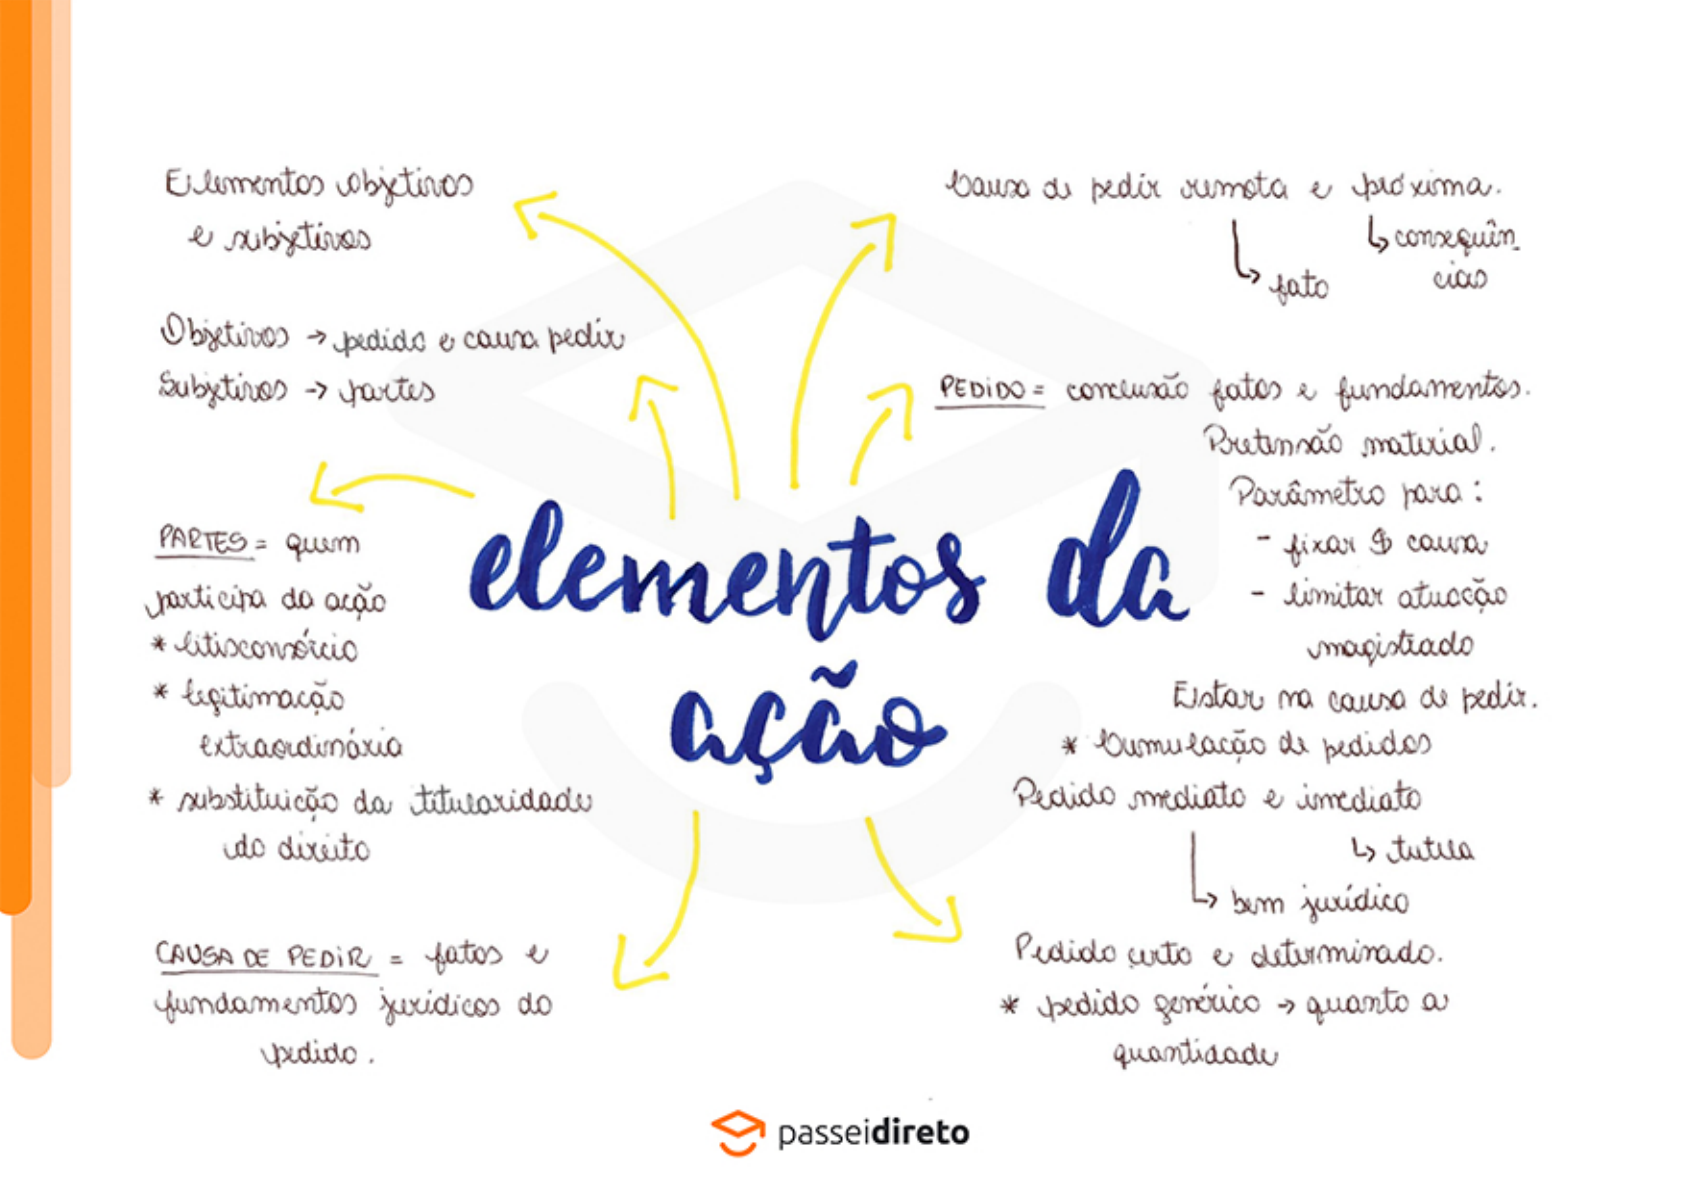 Elementos objetivos
e subjetivos
Objetivos → pedido e causa pedir
Subjetivos → partes
PARTES = quem
participa da ação
* litisconsórcio
* legitimação
extraordinária
* substituição da titularidade
do direito
CAUSA DE PEDIR = fatos e
fundamentos jurídicos do
pedido.
elementos da
ação
Causa de pedir remota e próxima.
↳ consequên_
cias
↳ fato
PEDIDO = conclusão fatos e fundamentos.
Pretensão material.
Parâmetro para:
- fixar $ causa
- limitar atuação
magistrado
Estar na causa de pedir.
* Cumulação de pedidos
Pedido mediato e imediato
↳ tutela
↳ bem jurídico
Pedido certo e determinado.
* pedido genérico → quanto a
quantidade
passeidireto